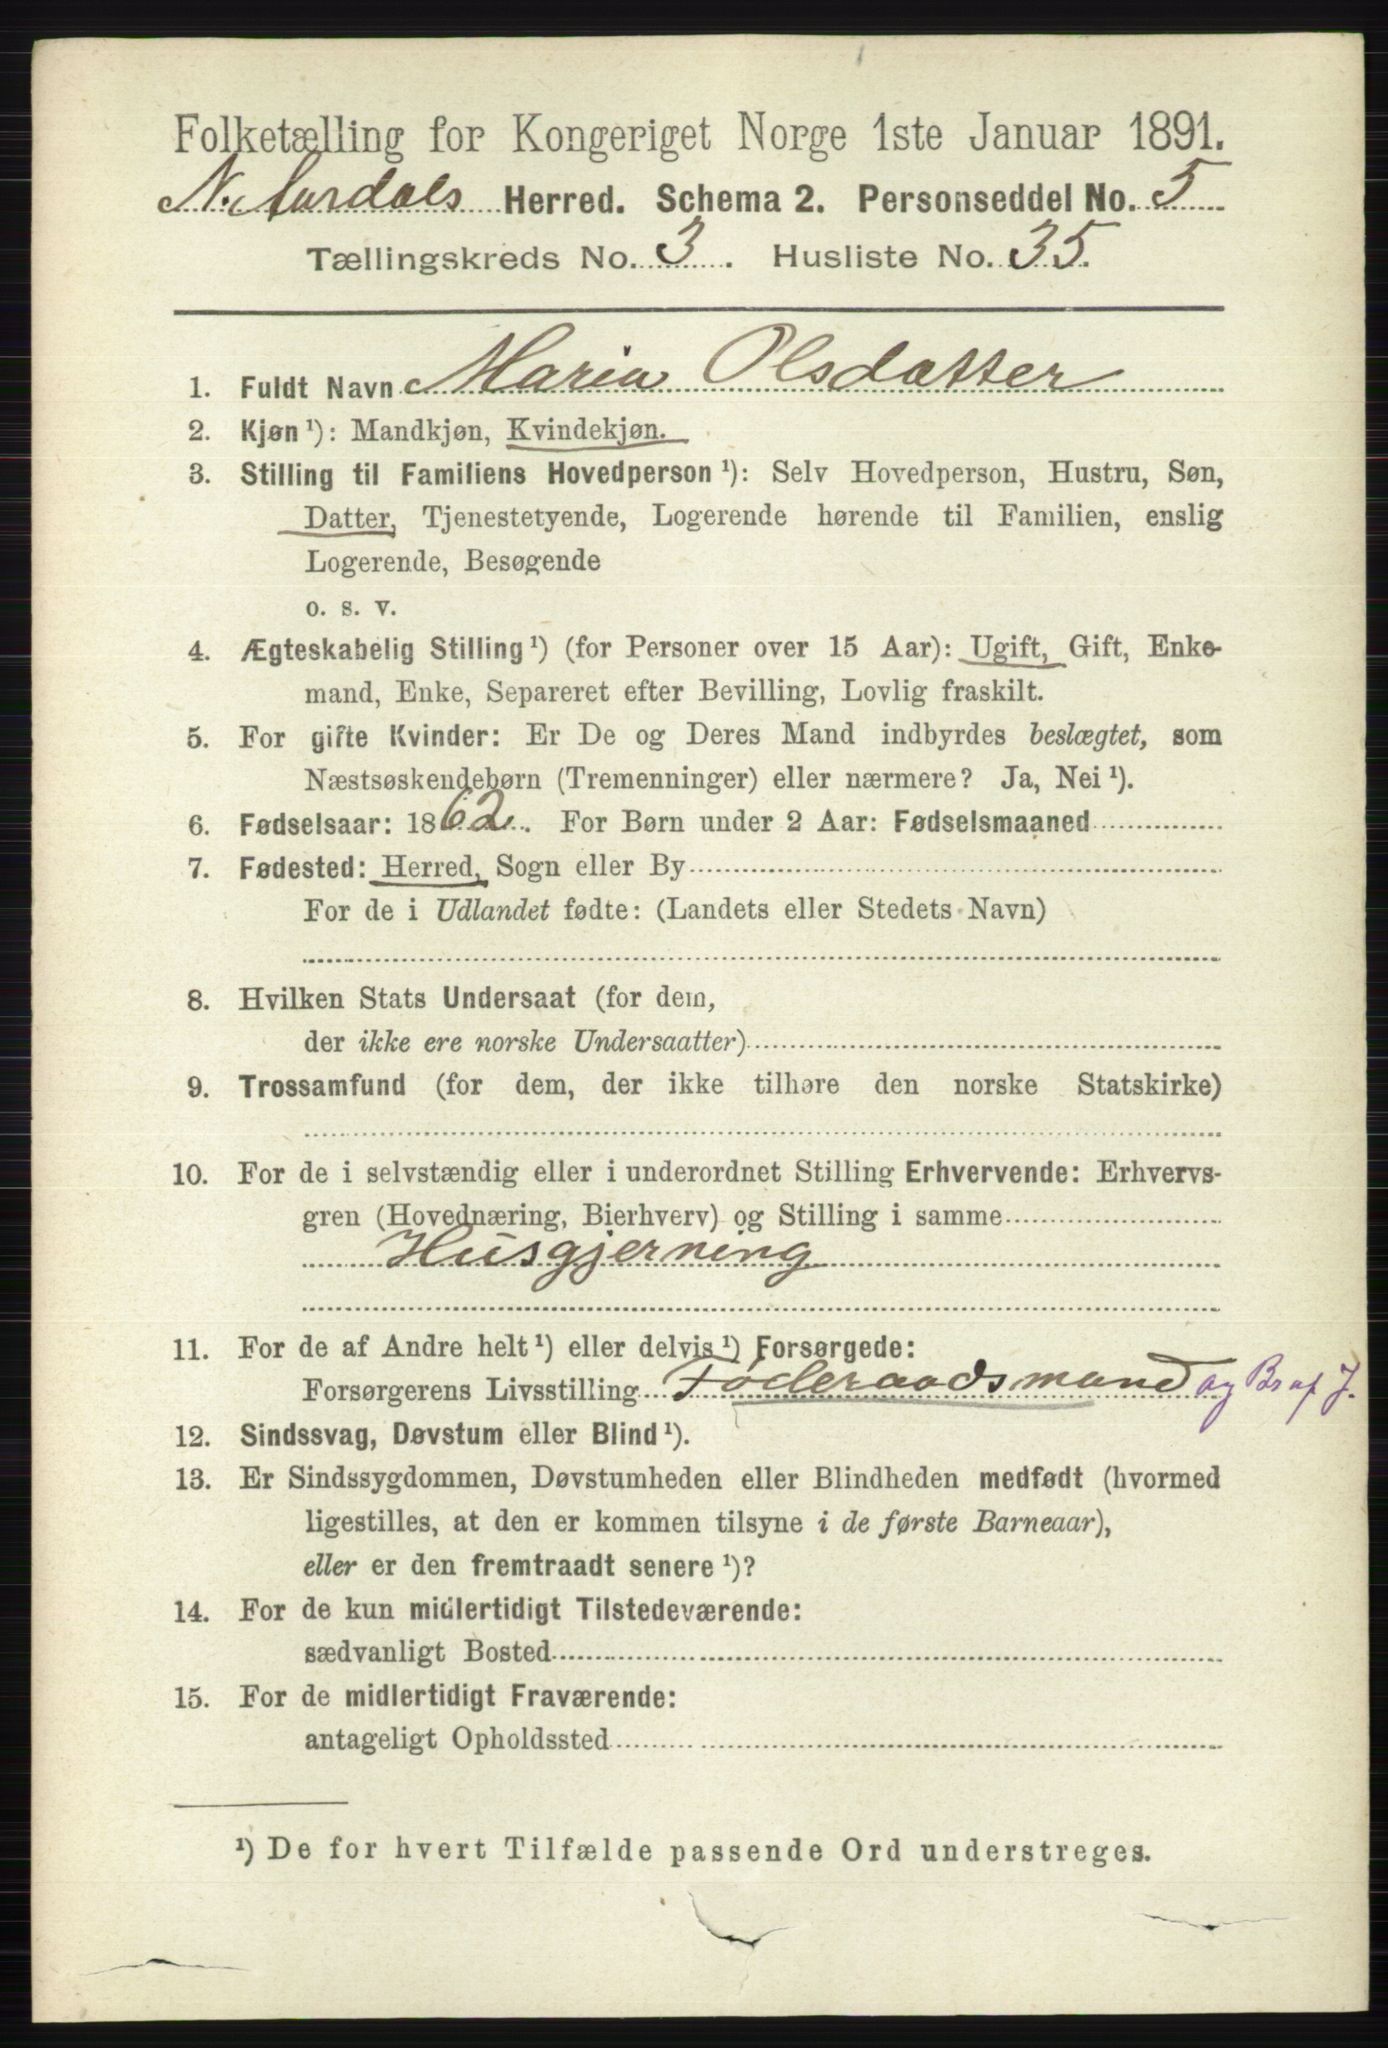 Folketælling for Kongeriget Norge 1ste Januar 1891.
N. Aurdals Herred. Schema 2. Personseddel No. 5
Tællingskreds No. 3. Husliste No. 35.
1. Fuldt Navn Maria Olsdatter
2. Kjøn¹): Mandkjøn, Kvindekjøn.
3. Stilling til Familiens Hovedperson¹): Selv Hovedperson, Hustru, Søn,
Datter, Tjenestetyende, Logerende hørende til Familien, enslig
Logerende, Besøgende
o. s. v.
4. Ægteskabelig Stilling¹) (for Personer over 15 Aar): Ugift, Gift, Enke-
mand, Enke, Separeret efter Bevilling, Lovlig fraskilt.
5. For gifte Kvinder: Er De og Deres Mand indbyrdes beslægtet, som
Næstsøskendebørn (Tremenninger) eller nærmere? Ja, Nei¹).
6. Fødselsaar: 1862. For Børn under 2 Aar: Fødselsmaaned
7. Fødested: Herred, Sogn eller By
For de i Udlandet fødte: (Landets eller Stedets Navn)
8. Hvilken Stats Undersaat (for dem,
der ikke ere norske Undersaatter)
9. Trossamfund (for dem, der ikke tilhøre den norske Statskirke)
10. For de i selvstændig eller i underordnet Stilling Erhvervende: Erhvervs-
gren (Hovednæring, Bierhverv) og Stilling i samme
Husgjerning
11. For de af Andre helt¹) eller delvis¹) Forsørgede:
Forsørgerens Livsstilling Føderaadsmand og Br af J.
12. Sindssvag, Døvstum eller Blind¹).
13. Er Sindssygdommen, Døvstumheden eller Blindheden medfødt (hvormed
ligestilles, at den er kommen tilsyne i de første Barneaar),
eller er den fremtraadt senere¹)?
14. For de kun midlertidigt Tilstedeværende:
sædvanligt Bosted
15. For de midlertidigt Fraværende:
antageligt Opholdssted
¹) De for hvert Tilfælde passende Ord understreges.